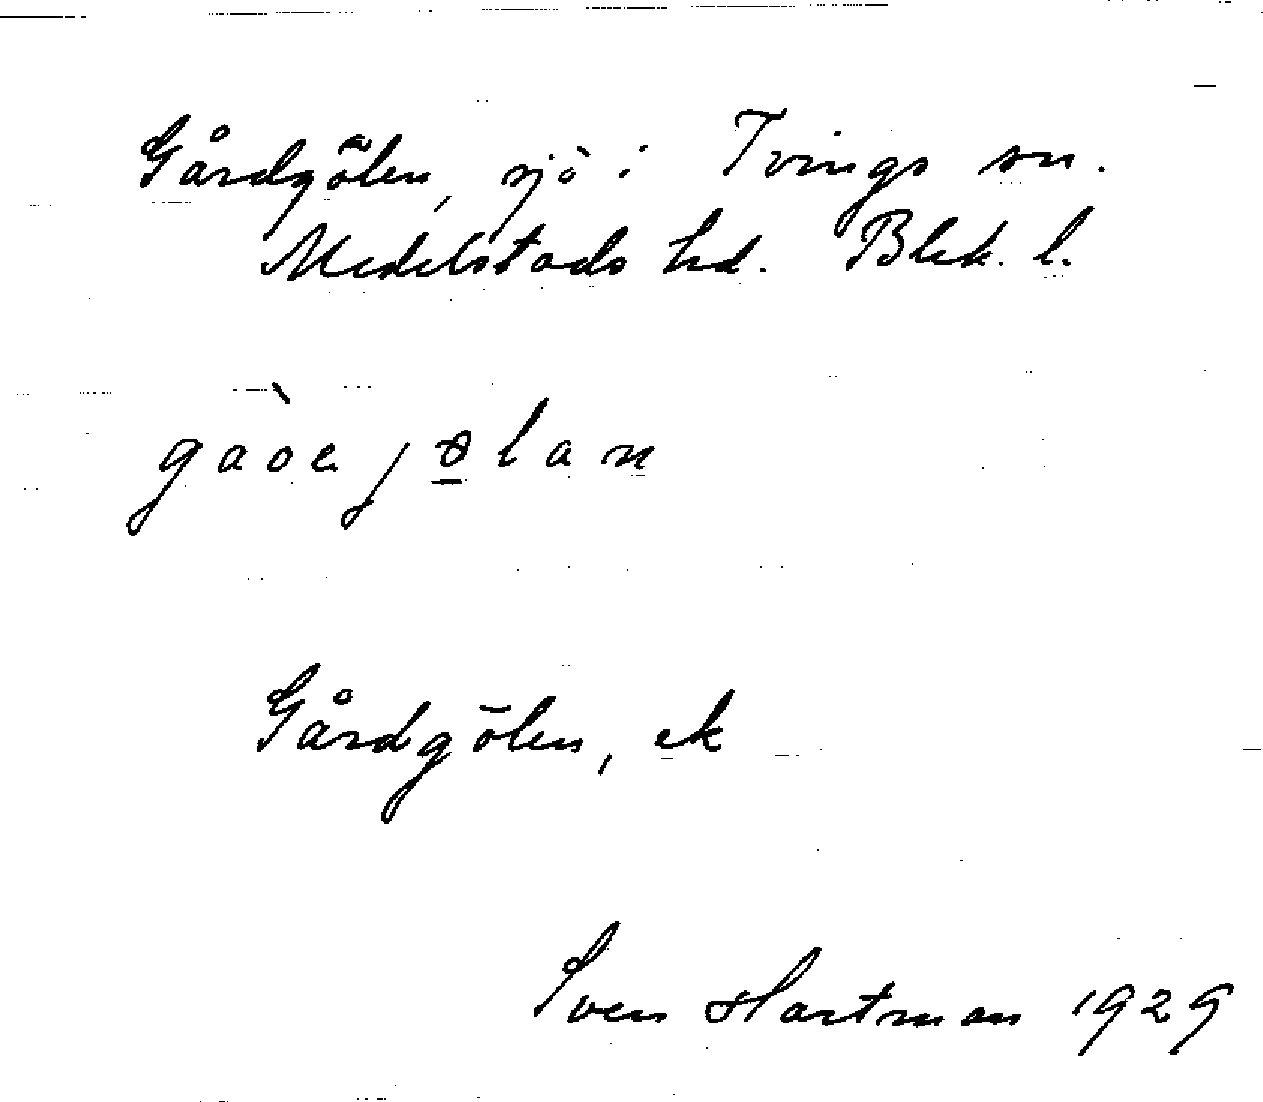 Gårdgölen, sjö i Tvings sn.
Medelstads hd. Blek. l.
gàoejølan
Gårdgölen, ek
Sven Hartman 1929